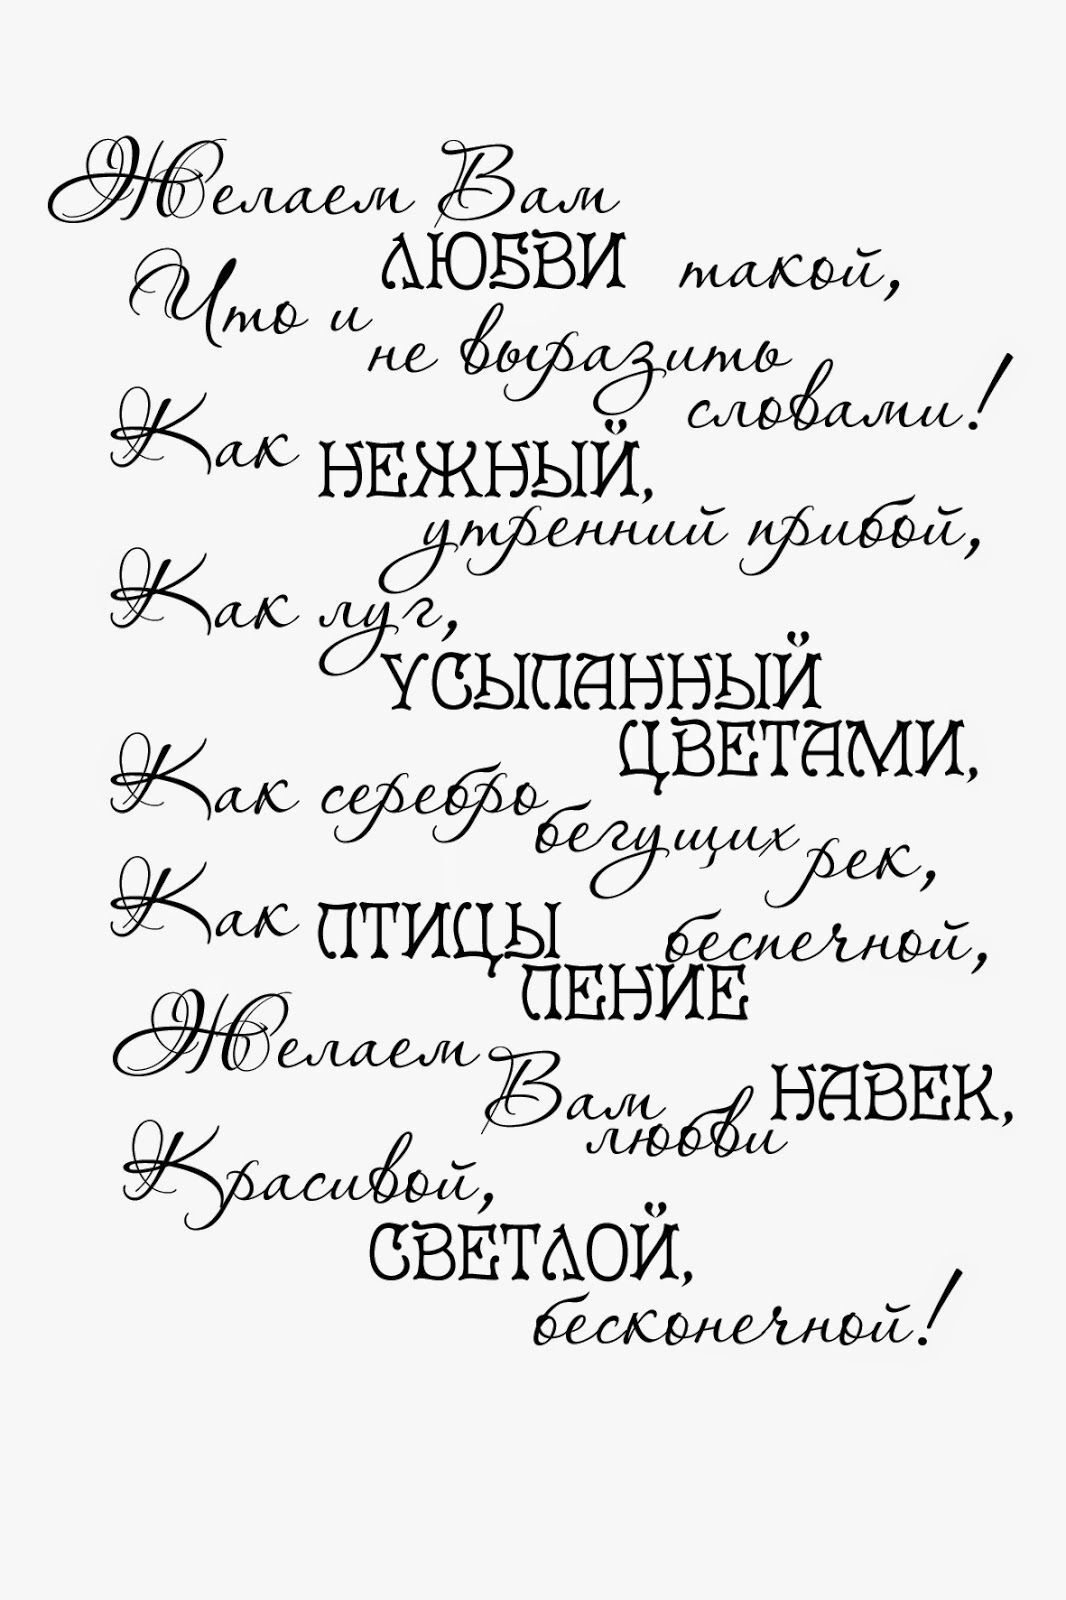 Желаем Вам
ЛЮБВИ такой,
Что и
не выразить
словами!
Как НЕЖНЫЙ,
утренний прибой,
Как луг,
УСЫПАННЫЙ
ЦВЕТАМИ,
Как серебро
бегущих
рек,
Как ПТИЦЫ беспечной,
ПЕНИЕ
Желаем
Вам НАВЕК,
любви
Красивой,
СВЕТЛОЙ,
бесконечной!